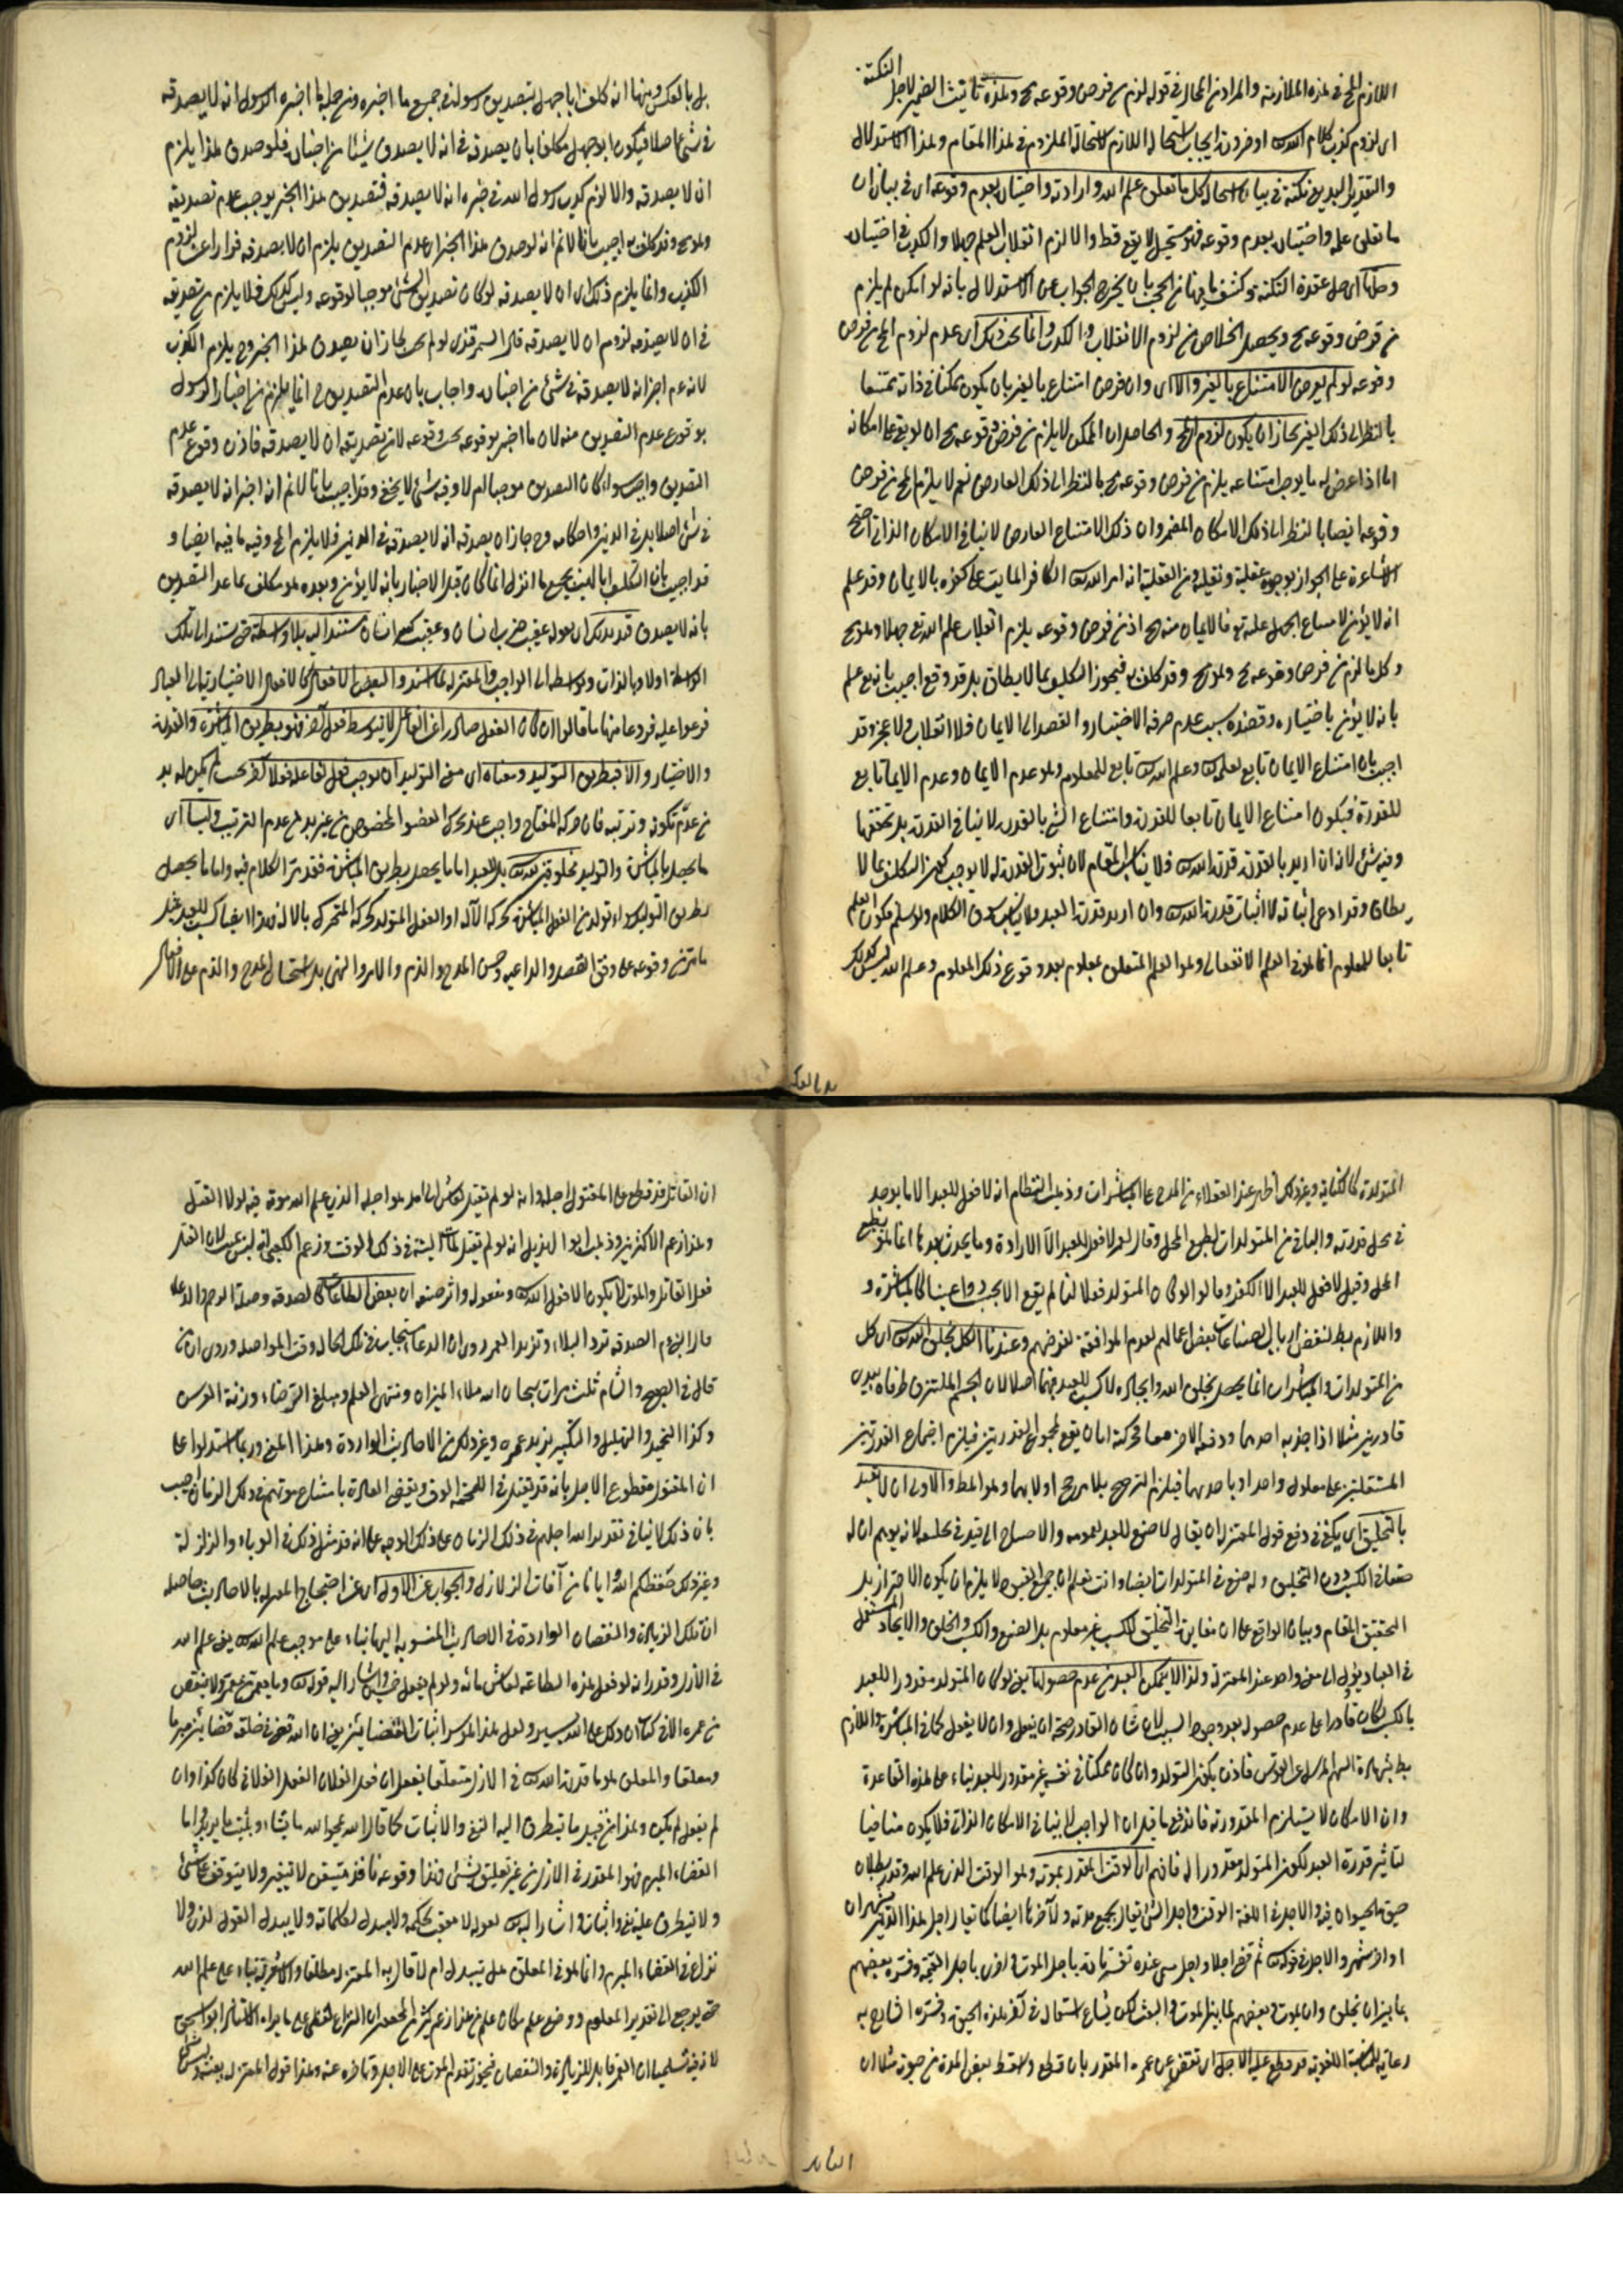 اللازم المح في هذه الملازمة والمراد من المحال في قوله لزم من فرض وقوعه مح وهذه تانيث الضمير لاجل النكتة
اى لزوم كذب كلام الله تعالى او ضرورة ايجاب استحالة اللازم استحالة الملزوم في هذا المقام وهذا الاستدلال
والتقدير البديع نكتة في بيان استحالة كل ما تعلق علم الله وارادته واختياره بعدم وقوعه اى في بيان ان
ما تعلق علمه واختياره بعدم وقوعه فهو مستحيل لا يقع قط والا لزم انقلاب العلم جهلا والكذب في اخباره
وحلها اى حل عقدة النكتة وكشف ما فيها من الحجب بان يخرج الجواب عن الاستدلال بانه لو امكن لم يلزم
من فرض وقوعه مح ويحصل الخلاص من لزوم الانقلاب والكذب وانما يجب ذلك اى عدم لزوم المح من فرض
وقوعه لو لم يعرض الامتناع بالغير والا اى وان فرض امتناع بالغير بان يكون ممكنا في ذاته ممتنعا
بالنظر الى ذلك الغير لجاز ان يكون لزوم المح والحاصل ان الممكن لا يلزم من فرض وقوعه مح ان لو بقي على امكانه
اما اذا عرض له ما يوجب امتناعه يلزم من فرض وقوعه مح بالنظر الى ذلك العارض نعم لا يلزم المح من فرض
وقوعه ايضا بالنظر الى ذلك الامكان المضمر وان ذلك الامتناع العارض لا ينافي الامكان الذاتي احتج
الاشاعرة على الجواز بوجوه عقلية ونقلية ومن العقلية انه امر الله تعالى الكافر المايت على كفره بالايمان وقد علم
انه لا يؤمن لامتناع الجهل عليه تع فالايمان منه مح اذ من فرض وقوعه يلزم انقلاب علم الله تع جهلا وهو مح
وكل ما لزم من فرض وقوعه مح وهو مح وقد كلف به فيجوز التكليف بما لا يطاق بل قد وقع اجيب بانه يع علم
بانه لا يؤمن باختياره وقصده بسبب عدم صرفه الاختيار والقصد الى الايمان فلا انقلاب ولا عجز وقد
اجيب بان امتناع الايمان تابع لعلمه تعالى وعلم الله تعالى تابع للمعلوم وهو عدم الايمان وعدم الايمان تابع
للقدرة فيكون امتناع الايمان تابعا للقدرة وامتناع الشئ بالقدرة لا ينافي القدرة بل تحققها
وفيه شئ لانه ان اريد بالقدرة قدرة الله تعالى فلا يناسب المقام لان ثبوت القدرة له لا يوجب كون التكليف بما لا
يطاق وقد ادعى اثباته لا اثبات قدرة الله تعالى وان اريد قدرة العبد فلا يناسب سوق الكلام ولو سلم فكون العلم
تابعا للمعلوم انما هو في العلم الانفعالى وهو العلم المتعلق بمعلوم بعد وقوع ذلك المعلوم وعلم الله ليس كذلك
بل بالعكس
بل بالعكس ومنها انه كلف ابا جهل بتصديق رسوله في جميع ما اخبره ومن جملة ما اخبره الرسول انه لا يصدقه
في شئ اصلا فيكون ابو جهل مكلفا بان يصدقه في انه لا يصدق شيئا من اخباره فلو صدق هذا يلزم
ان لا يصدقه والا لزم كذب رسول الله في خبره انه لا يصدقه فتصديق هذا الخبر يوجب عدم تصديقه
وهو مح وقد كلف به اجيب بانا لا نم انه لو صدق هذا الخبر اى عدم التصديق يلزم ان لا يصدقه فرارا عن لزوم
الكذب وانما يلزم ذلك اى ان لا يصدقه لو كان تصديق الشئ موجبا لوقوعه وليس كذلك فلا يلزم من تصديقه
في ان لا يصدقه لزوم ان لا يصدقه قال السمرقندى لو لم يجب لجاز ان يصدق هذا الخبر وح يلزم الكذب
لانه عم اخبر انه لا يصدقه في شئ من اخباره واجاب بان عدم التصديق ح انما يلزم من اخبار الرسول
بوقوع عدم التصديق منه لان ما اخبر بوقوعه يجب وقوعه لا من تصديقه ان لا يصدقه فاذن وقوع عدم
التصديق واجب سواء كان التصديق موجبا له ام لا وفيه شئ لا يخفى وقد اجيب بانا لا نم انه اخبر انه لا يصدقه
في شئ اصلا بل في الدين واحكامه وح جاز ان يصدقه انه لا يصدقه في الدين فلا يلزم المح وفيه ما فيه ايضا و
قد اجيب بان التكليف بالايمان بجميع ما انزل انما كان قبل الاخبار بانه لا يؤمن وبعده هو مكلف بما عدا التصديق
بانه لا يصدق قيد بذلك اى بقوله عقيب ضرب انسان وعقيب كسر انسان مستندا اليه بلا واسطة حتى مستندا الى تلك
الواسطة اولا وبالذات وبواسطة الى الواجب والمعتزلة لما اسندوا بعض الافعال كالافعال الاختيارية الى العباد
فرعوا عليه فروعا منها ما قالوا ان كان الفعل صادرا عن الفاعل لا بتوسط فعل آخر فهو بطريق المباشرة والقدرة
والاختيار والا فبطريق التوليد ومعناه اى معنى التوليد ان يوجب فعل لفاعله فعلا آخر بحيث لم يكن له بد
من عدم تكونه وترتبه فان حركة المفتاح واجب عند تحرك العضو المخصوص من غير بد من عدم الترتيب وليسا اى
ما يحصل بالمباشرة والتوليد مخلوقين لله تعالى بل للعبد اما ما يحصل بطريق المباشرة فقد مر الكلام فيه واما ما يحصل
بطريق التوليد سواء تولد من الفعل المباشر كحركة الآلة او الفعل المتولد كحركة المتحرك بالالة فهذا ايضا كسب للعبد عند
ما مر من وقوعه على وفق القصد والداعية وحسن المدح والذم والامر والنهى بل استحقاق المدح والذم على الافعال
المتولدة كالكتابة وغير ذلك اظهر عند العقلاء من المدح على المباشرات وذهب النظام الى انه لا فعل للعبد الا ما يوجد
في محل قدرته والباقي من المتولدات بطبع المحل وقال معمر لا فعل للعبد الا الارادة وما يحدث بعدها انما هو بطبع
المحل وقيل لا فعل للعبد الا الفكر وقالوا لو كان المتولد فعلا لنا لم يقع الا بحسب دواعينا كالمباشرة و
واللازم بط لنقض ارباب الصناعات بعض اعمالهم لعدم الموافقة لغرضهم وعندنا الكل بخلق الله تعالى اى كل
من المتولدات والمباشرات انما يحصل بخلق الله وايجاده لا كسب للعبد فيها اصلا لان الجسم الملتزق طرفاه بيدى
قادرين مثلا اذا جذبه احدهما ودفعه الاخر معا فحركته اما ان يقع بمجموع القدرتين فيلزم اجتماع القدرتين
المستقلتين على معلول واحد او باحديهما فيلزم الترجيح بلا مرجح او لا بهما وهو المط والاولى ان لا يقيد
بالتخليق اى يكفي في دفع قول المعتزلة ان يقال لا صنع للعبد لعمومه والاحتياج الى قيد في تخليقه لانه يوهم ان له
صنعا في الكسب دون التخليق وله صنع في المتولدات ايضا وانت تعلم ان جميع القيود لا يلزم ان يكون للاحتراز بل
لتحقيق المقام وبيان الواقع على ان مغايرة التخليق للكسب غير معلوم بل الصنع والكسب والخلق والايجاد المستعمل
في العباد يؤل الى معنى واحد عند المعتزلة ولهذا لا يتمكن العبد من عدم حصولها يعنى لو كان المتولد مقدورا للعبد
بالكسب لكان قادرا على عدم حصوله بعد وجود السبب لان شان القادر صحة ان يفعل وان لا يفعل كما في المباشرة واللازم
بط بشهادة السهم المرسل عن القوس فاذن يكون المتولد وان كان ممكنا في نفسه غير مقدور للعبد بناء على هذه القاعدة
وان الامكان لا يستلزم المقدورية فاندفع ما قيل ان الواجب لا ينافي الامكان الذاتي فلا يكون منافيا
لتاثير قدرة العبد لكون المتولد مقدورا له فافهم اى الوقت المقدر بموته وهو الوقت الذى علم الله وقدر بطلان
حيوة الحيوان فيه والاجل في اللغة الوقت واجل الشئ يقال لجميع مدته ولآخرها ايضا كما يقال اجل هذا الدين شهران
او آخر شهر والاجل في قوله تعالى ثم قضى اجلا واجل مسمى عنده تفسيرا له باجل الموت واخرى باجل القيمة وفسره بعضهم
بما بين ان يخلق وان يموت وبعضهم لما بين الموت والبعث لكن شاع استعماله في آخر هذه الحيوة وفسره الشارح به
رعاية للمناسبة اللغوية قد قطع عليه الاجل اى نقص عن عمره المقدر بان قطع واسقط بعض المدة من حيوته مثلا ان
القاتل
ان القاتل قد قطع على المقتول اجله وانه لو لم يقتل لعاش الى امد هو اجله الذى علم الله موته فيه لولا القتل
وهذا زعم الاكثرين وذهب ابو الهذيل انه لو لم يقتل لمات البتة في ذلك الوقت وزعم الكعبى انه ليس بميت لان القتل
فعل القاتل والموت لا يكون الا فعل الله تعالى ومفعوله واثر صنعه ان بعض الطاعات كالصدقة وصلة الرحم والدعاء
ما رد الى قوم الصدقة ترد البلاء وتزيد العمر روى ان الدعاء مستجاب في ذلك الحال وقت المواصلة وروى ان من
قال في الصبح والشام ثلث مرات سبحان الله ملاء الميزان ومنتهى العلم ومبلغ الرضاء وزنة العرش
وكذا التحميد والتهليل والتكبير يزيد عمره وغير ذلك من الاحاديث الواردة وهذا المعنى وربما استدلوا على
ان المقتول مقطوع الاجل بانه قد يقتل في الملحمة الوف ويقضى العادة بامتناع موتهم في ذلك الزمان اجيب
بان ذلك لا ينافي تقدير الله اجلهم في ذلك الزمان على ذلك الوجه على انه قد مثل ذلك في الوباء والزلزلة
وغير ذلك حفظكم الله وايانا من آفات الزلازل والجواب عن الاول اى عن احتجاج المعتزلة بالاحاديث حاصله
ان تلك الزيادة والنقصان الواردة في الاحاديث المنسوبة اليها بناء على موجب علم الله تعالى يعنى علم الله
في الازل وقدر انه لو فعل هذه الطاعة لعاش مائة ولو لم يفعل خمسين واشار اليه قوله تعالى وما يعمر من معمر ولا ينقص
من عمره الا في كتاب ان ذلك على الله يسير ولعل هذا المؤسس اثبات لقضايتين يعنى ان الله تعالى في خلقه قضايتين مبرما
ومعلقا والمعلق هو ما قدره الله تعالى في الازل متعلقا بفعل ان فعل الفلان الفعل الفلانى كان كذا وان
لم يفعل لم يكن وهذا من قبيل ما يتطرق اليه النفى والاثبات كما قال الله يمحوا الله ما يشاء ويثبت ما يريد واما
القضاء المبرم فهو المقدر في الازل من غير تعليق بشئ وهذا وقوعه نافذ متيقن لا تغير ولا يتوقف على شئ
ولا يتطرق عليه نفى واثبات واشار اليه تعالى بقوله لا معقب لحكمه ولا مبدل لكلماته ولا يبدل القول لدى ولا
نزاع في القضاء المبرم وانما هو في المعلق هل يتبدل ام لا قال به المعتزلة مطلقا والاشعرية بناء على علم الله
حتى يرجع الى تقدير المعلوم ووضع علم مكان علم من هذا زعم كثير من المحققين ان النزاع لفظى على ما يراه الاستاذ ابو اسحق
لانه فيه تسليما ان العمر قابل للزيادة والنقصان فيجوز تقدم الموت على الاجل وتاخره عنه وهذا قول المعتزلة بعينه